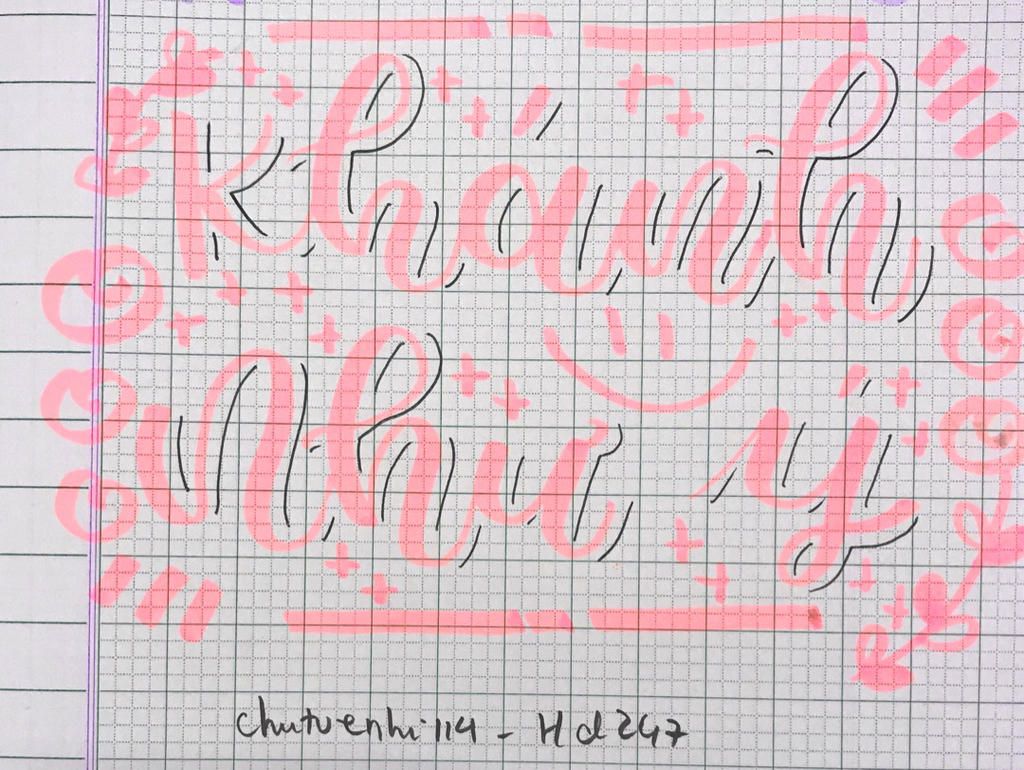 Khánh
Như ý
chutuenhi114 - Hd247